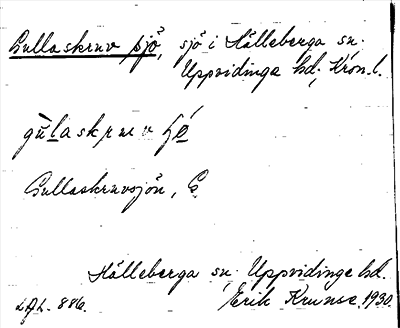 Gullaskruv sjö, sjö i Hälleberga sn.
Uppvidinge hd; Kron. l.
gùlaskruv ʃé
Gullaskruvsjön, E.
Hälleberga sn. Uppvidinge hd.
LAL. 886. Erik Krunse. 1930.